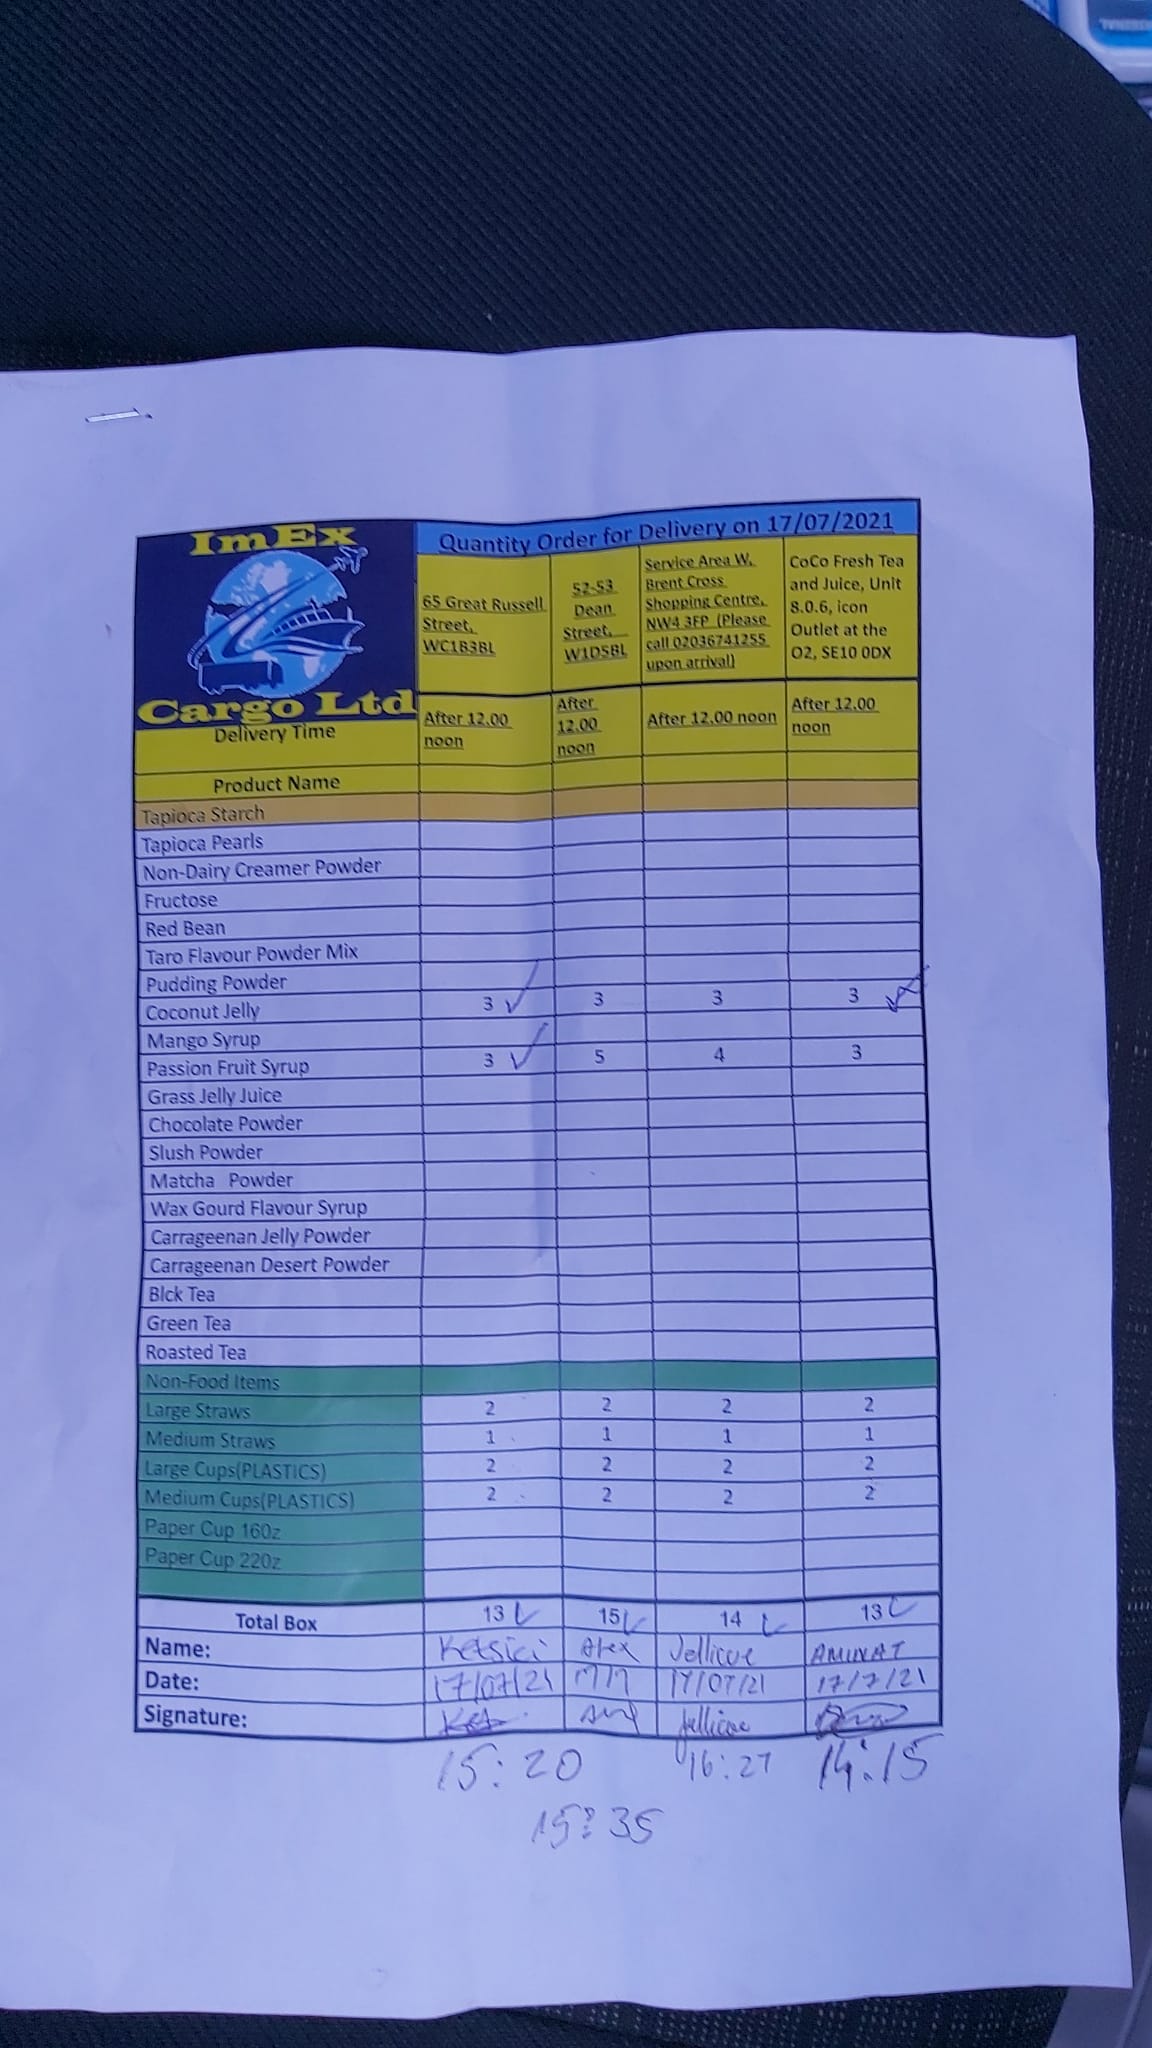 ImEx
Cargo Ltd
Quantity Order for Delivery on 17/07/2021
65 Great Russell
Street,
WC1B3BL
52-53
Dean
Street,
W1D5BL
Service Area W,
Brent Cross
Shopping Centre,
NW4 3FP (Please
call 02036741255
upon arrival)
CoCo Fresh Tea
and Juice, Unit
8.0.6, icon
Outlet at the
O2, SE10 0DX
Delivery Time
After 12.00
noon
After
12.00
noon
After 12.00 noon
After 12.00
noon
Product Name
Tapioca Starch
Tapioca Pearls
Non-Dairy Creamer Powder
Fructose
Red Bean
Taro Flavour Powder Mix
Pudding Powder
Coconut Jelly 3 3 3 3
Mango Syrup
Passion Fruit Syrup 3 5 4 3
Grass Jelly Juice
Chocolate Powder
Slush Powder
Matcha Powder
Wax Gourd Flavour Syrup
Carrageenan Jelly Powder
Carrageenan Desert Powder
Blck Tea
Green Tea
Roasted Tea
Non-Food Items
Large Straws 2 2 2 2
Medium Straws 1 1 1 1
Large Cups(PLASTICS) 2 2 2 2
Medium Cups(PLASTICS) 2 2 2 2
Paper Cup 16oz
Paper Cup 22oz
Total Box 13 15 14 13
Name: Alex Jellicoe AMINAT
Date: 17/07/21 17/7 17/07/21 17/7/21
Signature: Jellicoe
15:20 16:27 14:15
15:35